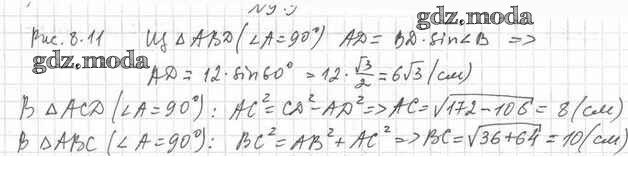 № 9.9
gdz.moda
Рис. 8.11 Из △ABD (∠A=90°) AD = BD·sin∠B =>
gdz.moda
AD = 12·sin60° = 12·√3/2 = 6√3 (см)
В △ACD (∠A=90°): AC² = CD² - AD² => AC = √(172-108) = 8 (см)
В △ABC (∠A=90°): BC² = AB² + AC² => BC = √(36+64) = 10 (см)